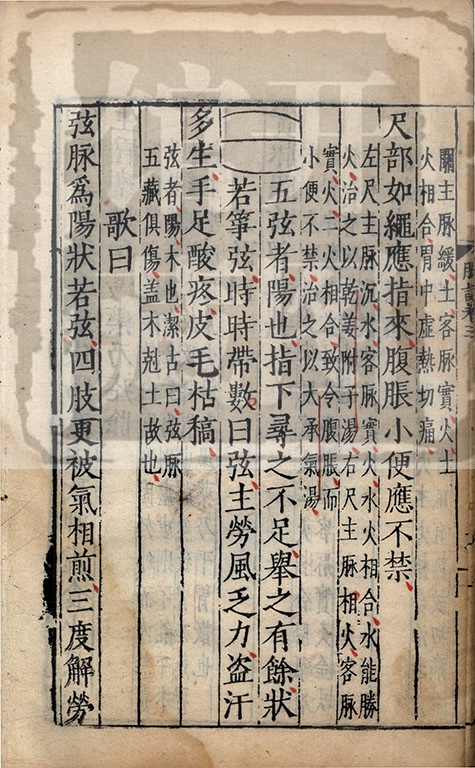 關主脉緩土客脉實火土
火相合胃中虛熱切痛
尺部如繩應指來腹脹小便應不禁
左尺主脉沉水客脉實火水火相合水能勝
火治之以乾姜附子湯右尺主脉相火客脉
實火二火相合致令腹脹而
小便不禁治之以大承氣湯
五弦者陽也指下尋之不足舉之有餘狀
若箏弦時時帶數曰弦主勞風乏力盜汗
多生手足酸疼皮毛枯槁
弦者陽木也潔古曰弦脉
五藏俱傷盖木剋土故也
歌曰
弦脉為陽狀若弦四肢更被氣相煎三度解勞